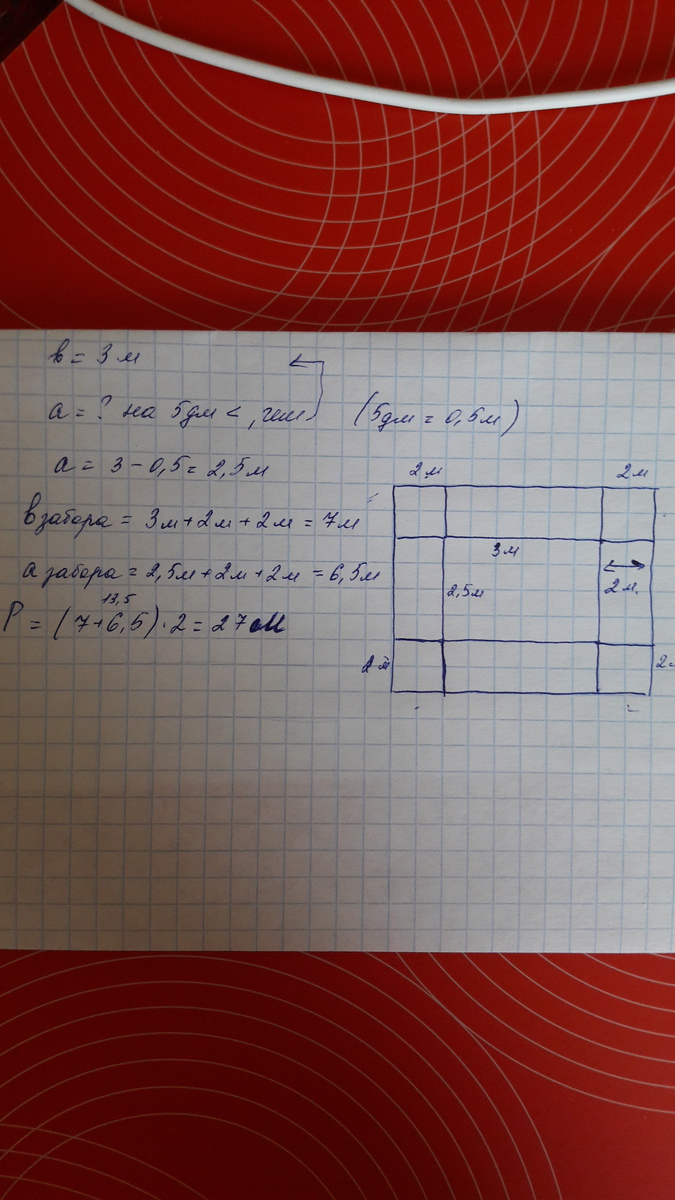 в = 3 м
а = ? на 5дм <, чем (5дм = 0,5м)
а = 3 - 0,5 = 2,5м
в забора = 3м + 2м + 2м = 7м
а забора = 2,5м + 2м + 2м = 6,5м
13,5
Р = (7+6,5) · 2 = 27м
2м 2м
3м
2,5м 2м.
2м 2